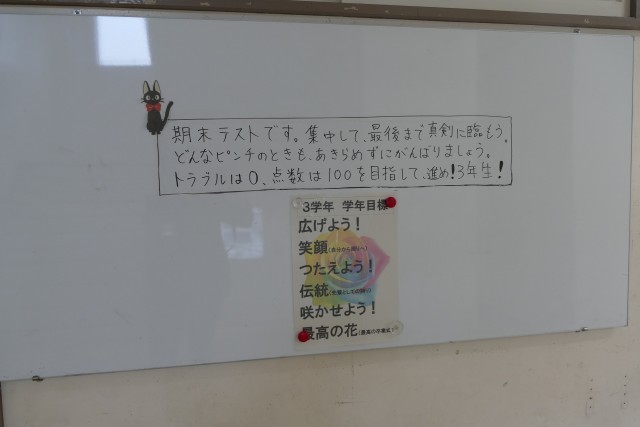 期末テストです。集中して、最後まで真剣に臨もう。
どんなピンチのときも、あきらめずにがんばりましょう。
トラブルは0、点数は100を目指して、進め!3年生!
3学年 学年目標
広げよう!
笑顔
つたえよう!
伝統
咲かせよう!
最高の花